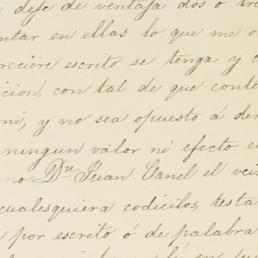 deje de ventaja dos ó tre
ntar en ellas lo que me o
reciere escrito se tenga y c
icion, con tal de que conte
ni, y no sea opuesto á de
ningun valor ni efecto e
no Dn Juan Canel el vei
cualesquiera codicilos, testa
por escrito ó de palabra